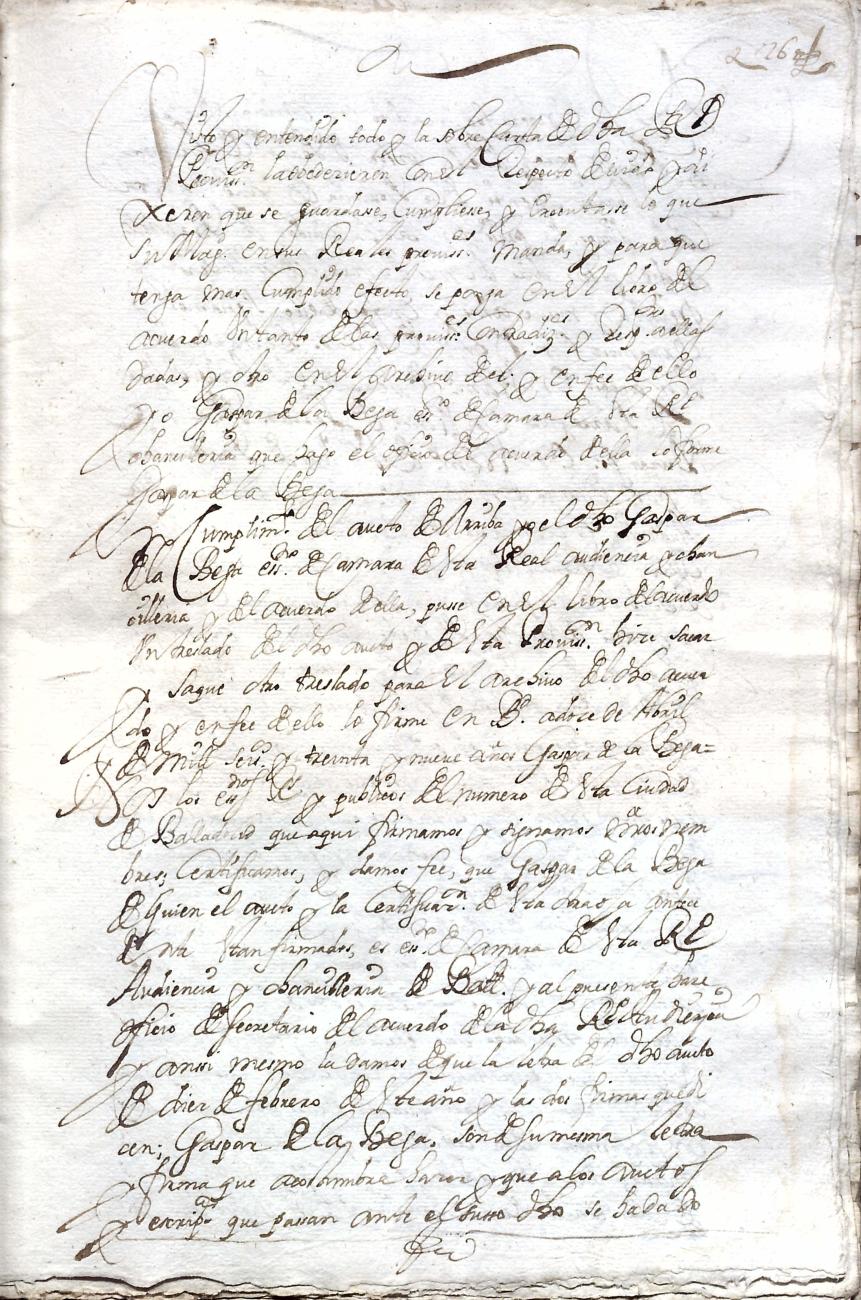 226
Visto y entendido todo y la sobre Carta de dha Rl
Prouisn. la obedecieron con el Respecto deuido y di
xeron que se guardase, Cumpliese, y executasse lo que
Su Magd. en sus Reales prouisses. manda, y para que
tenga mas Cumplido efecto, se ponga en el libro del
acuerdo Vn tanto de las prouisses. Contradiziones y Respdas. a ellas
dadas, y otro en el Archivo del; y en fee de ello
yo Gaspar de la Bega essno. de Camara de esta Rl
chancilleria que hago el oficio de acuerdo della lo firme
Gaspar de la Bega
En Cumplimto. del aucto de Arriba yo el dho Gaspar
de la Bega essno. de Camara de esta Real audiencia y chan
cilleria y del acuerdo della, puse en el libro del acuerdo
Vn treslado del dho aucto y de esta Prouissn. hice sacar
y saque otro treslado para el archivo del dho acuer
do y en fee dello lo firme en Bd. a doce de Abril
de mill seisos. y treinta y nueve años Gaspar de la Bega=
Nos los essnos Rs y publicos del numero de esta Ciudad
de Balladolid que aqui firmamos y signamos nros nom
bres; Certificamos, y damos fee, que Gaspar de la Bega
de quien el aucto y la Certificazon. de esta otra oja antece
dente estan firmados, es essno. de Camara de esta Rl
Audiencia y chancilleria de Balld. y al presente hace
oficio de secretario del acuerdo de la dha Rl Audiençia
y anssi mesmo la damos de que la letra del dho aucto
de diez de febrero de este año y las dos firmas que di
cen; Gaspar de la Bega. son de su mesma letra
y firma que acostumbra hacer y que a los auctos
y escripas. que passan ante el susso dho se ha dado
fee